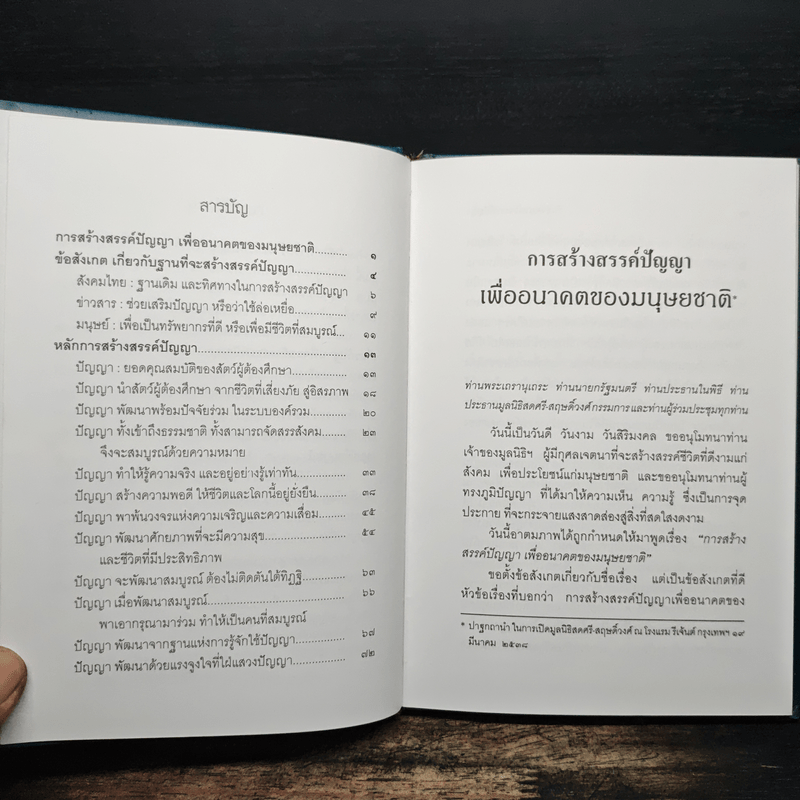 สารบัญ
การสร้างสรรค์ปัญญา เพื่ออนาคตของมนุษยชาติ........... ๑
ข้อสังเกต เกี่ยวกับฐานที่จะสร้างสรรค์ปัญญา................. ๔
สังคมไทย : ฐานเดิม และทิศทางในการสร้างสรรค์ปัญญา ๖
ข่าวสาร : ช่วยเสริมปัญญา หรือว่าใช้ล่อเหยื่อ................ ๙
มนุษย์ : เพื่อเป็นทรัพยากรที่ดี หรือเพื่อมีชีวิตที่สมบูรณ์... ๑๑
หลักการสร้างสรรค์ปัญญา.................................... ๑๓
ปัญญา : ยอดคุณสมบัติของสัตว์ผู้ต้องศึกษา................ ๑๓
ปัญญา นำสัตว์ผู้ต้องศึกษา จากชีวิตที่เสี่ยงภัย สู่อิสรภาพ ๑๘
ปัญญา พัฒนาพร้อมปัจจัยร่วม ในระบบองค์รวม............. ๒๐
ปัญญา ทั้งเข้าถึงธรรมชาติ ทั้งสามารถจัดสรรสังคม......... ๒๓
จึงจะสมบูรณ์ด้วยความหมาย
ปัญญา ทำให้รู้ความจริง และอยู่อย่างรู้เท่าทัน.............. ๓๓
ปัญญา สร้างความพอดี ให้ชีวิตและโลกนี้อยู่ยั่งยืน.......... ๓๘
ปัญญา พาพ้นวงจรแห่งความเจริญและความเสื่อม........... ๔๕
ปัญญา พัฒนาศักยภาพที่จะมีความสุข....................... ๕๔
และชีวิตที่มีประสิทธิภาพ
ปัญญา จะพัฒนาสมบูรณ์ ต้องไม่ติดตันใต้ทิฏฐิ............. ๖๓
ปัญญา เมื่อพัฒนาสมบูรณ์.................................. ๖๖
พาเอากรุณามาร่วม ทำให้เป็นคนที่สมบูรณ์
ปัญญา พัฒนาจากฐานแห่งการรู้จักใช้ปัญญา................ ๖๗
ปัญญา พัฒนาด้วยแรงจูงใจที่ใฝ่แสวงปัญญา................ ๗๒
การสร้างสรรค์ปัญญา
เพื่ออนาคตของมนุษยชาติ*
ท่านพระเถรานุเถระ ท่านนายกรัฐมนตรี ท่านประธานในพิธี ท่าน
ประธานมูลนิธิสดศรี-สฤษดิ์วงศ์ กรรมการ และท่านผู้ร่วมประชุมทุกท่าน
วันนี้เป็นวันดี วันงาม วันสิริมงคล ขออนุโมทนาท่าน
เจ้าของมูลนิธิฯ ผู้มีกุศลเจตนาที่จะสร้างสรรค์ชีวิตที่ดีงามแก่
สังคม เพื่อประโยชน์แก่มนุษยชาติ และขออนุโมทนาท่านผู้
ทรงภูมิปัญญา ที่ได้มาให้ความเห็น ความรู้ ซึ่งเป็นการจุด
ประกาย ที่จะกระจายแสงสาดส่องสู่สิ่งที่สดใสงดงาม
วันนี้อาตมภาพได้ถูกกำหนดให้มาพูดเรื่อง “การสร้าง
สรรค์ปัญญา เพื่ออนาคตของมนุษยชาติ”
ขอตั้งข้อสังเกตเกี่ยวกับชื่อเรื่อง แต่เป็นข้อสังเกตที่ดี
หัวข้อเรื่องที่บอกว่า การสร้างสรรค์ปัญญาเพื่ออนาคตของ
* ปาฐกถานำ ในการเปิดมูลนิธิสดศรี-สฤษดิ์วงศ์ ณ โรงแรม รีเจ้นต์ กรุงเทพฯ ๑๙
มีนาคม ๒๕๓๘